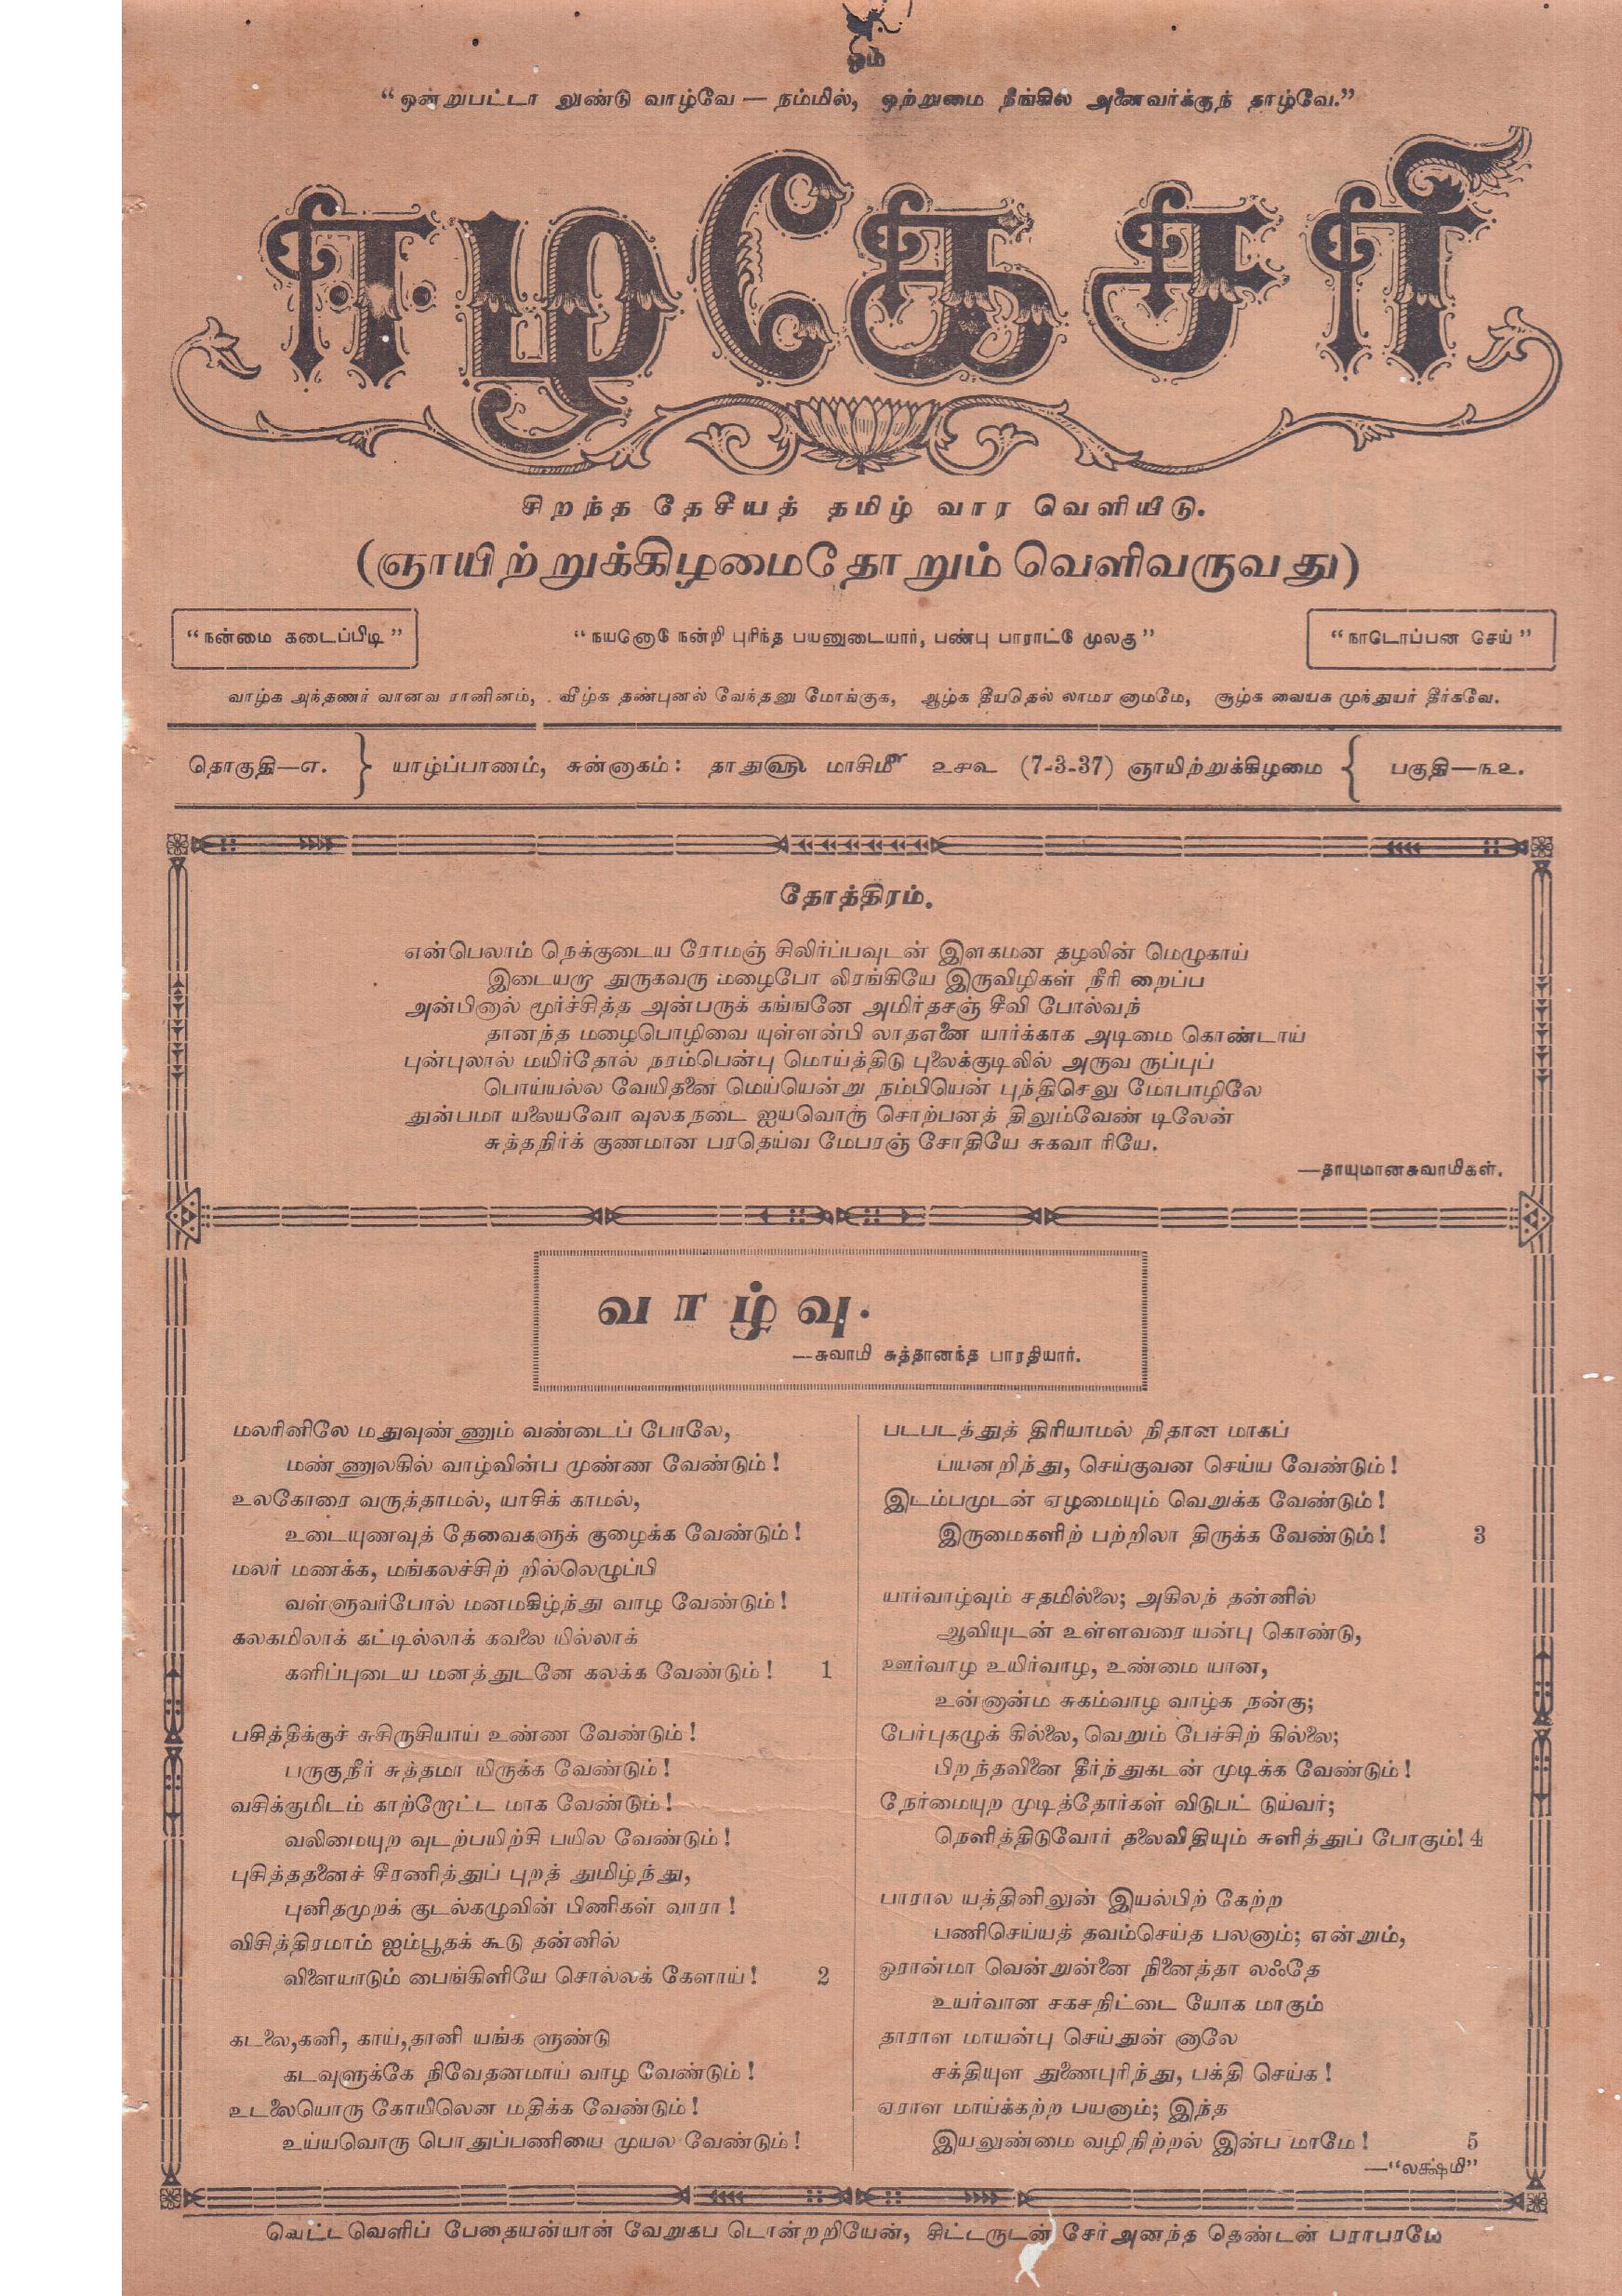 ஓம்
“ஒன்றுபட்டா லுண்டு வாழ்வே — நம்மில், ஒற்றுமை நீங்கில் அனைவர்க்குந் தாழ்வே.”
ஈழகேசரி
சிறந்த தேசீயத் தமிழ் வார வெளியீடு.
(ஞாயிற்றுக்கிழமைதோறும் வெளிவருவது)
“நன்மை கடைப்பிடி”
“நயனொடு நன்றி புரிந்த பயனுடையார், பண்பு பாராட்டு முலகு”
“நாடொப்பன செய்”
வாழ்க அந்தணர் வானவ ரானினம், வீழ்க தண்புனல் வேந்தனு மோங்குக, ஆழ்க தீயதெல் லாமர னாமமே, சூழ்க வையக முந்துயர் தீர்கவே.
தொகுதி—எ. } யாழ்ப்பாணம், சுன்னாகம்: தாது௵ மாசி௴ ௨௪௳ (7-3-37) ஞாயிற்றுக்கிழமை { பகுதி—௩௨.
தோத்திரம்.
என்பெலாம் நெக்குடைய ரோமஞ் சிலிர்ப்பவுடன் இளகமன தழலின் மெழுகாய்
இடையறா துருகவரு மழைபோ லிரங்கியே இருவிழிகள் நீரி றைப்ப
அன்பினால் மூர்ச்சித்த அன்பருக் கங்ஙனே அமிர்தசஞ் சீவி போல்வந்
தானந்த மழைபொழிவை யுள்ளன்பி லாதஎனை யார்க்காக அடிமை கொண்டாய்
புன்புலால் மயிர்தோல் நரம்பென்பு மொய்த்திடு புலைக்குடிலில் அருவ ருப்புப்
பொய்யல்ல வேயிதனை மெய்யென்று நம்பியென் புந்திசெலு மோபாழிலே
துன்பமா யலையவோ வுலகநடை ஐயவொரு சொற்பனத் திலும்வேண் டிலேன்
சுத்தநிர்க் குணமான பரதெய்வ மேபரஞ் சோதியே சுகவா ரியே.
—தாயுமானசுவாமிகள்.
வாழ்வு.
—சுவாமி சுத்தானந்த பாரதியார்.
மலரினிலே மதுவுண் ணும் வண்டைப் போலே,
மண் ணுலகில் வாழ்வின்ப முண்ண வேண்டும்!
உலகோரை வருத்தாமல், யாசிக் காமல்,
உடையுணவுத் தேவைகளுக் குழைக்க வேண்டும்!
மலர் மணக்க, மங்கலச்சிற் றில்லெழுப்பி
வள்ளுவர்போல் மனமகிழ்ந்து வாழ வேண்டும்!
கலகமிலாக் கட்டில்லாக் கவலை யில்லாக்
களிப்புடைய மனத்துடனே கலக்க வேண்டும்! 1
பசித்தீக்குச் சுசிருசியாய் உண்ண வேண்டும்!
பருகுநீர் சுத்தமா யிருக்க வேண்டும்!
வசிக்குமிடம் காற்றோட்ட மாக வேண்டும்!
வலிமையுற வுடற்பயிற்சி பயில வேண்டும்!
புசித்ததனைச் சீரணித்துப் புறத் துமிழ்ந்து,
புனிதமுறக் குடல்கழுவின் பிணிகள் வாரா!
விசித்திரமாம் ஐம்பூதக் கூடு தன்னில்
விளையாடும் பைங்கிளியே சொல்லக் கேளாய்! 2
கடலை,கனி, காய்,தானி யங்க ளுண்டு
கடவுளுக்கே நிவேதனமாய் வாழ வேண்டும்!
உடலையொரு கோயிலென மதிக்க வேண்டும்!
உய்யவொரு பொதுப்பணியை முயல வேண்டும்!
படபடத்துத் திரியாமல் நிதான மாகப்
பயனறிந்து, செய்குவன செய்ய வேண்டும்!
இடம்பமுடன் ஏழமையும் வெறுக்க வேண்டும்!
இருமைகளிற் பற்றிலா திருக்க வேண்டும்! 3
யார்வாழ்வும் சதமில்லை; அகிலந் தன்னில்
ஆவியுடன் உள்ளவரை யன்பு கொண்டு,
ஊர்வாழ உயிர்வாழ, உண்மை யான,
உன்னான்ம சுகம்வாழ வாழ்க நன்கு;
பேர்புகழுக் கில்லை, வெறும் பேச்சிற் கில்லை;
பிறந்தவினை தீர்ந்துகடன் முடிக்க வேண்டும்!
நேர்மையுற முடித்தோர்கள் விடுபட் டுய்வர்;
நெளித்திடுவோர் தலைவிதியும் சுளித்துப் போகும்! 4
பாரால யத்தினிலுன் இயல்பிற் கேற்ற
பணிசெய்யத் தவம்செய்த பலனாம்; என்றும்,
ஓரான்மா வென்றுன்னை நினைத்தா லஃதே
உயர்வான சகசநிட்டை யோக மாகும்
தாராள மாயன்பு செய்துன் னாலே
சக்தியுள துணைபுரிந்து, பக்தி செய்க!
ஏராள மாய்க்கற்ற பயனாம்; இந்த
இயலுண்மை வழிநிற்றல் இன்ப மாமே! 5
—“லக்ஷ்மி”
வெட்டவெளிப் பேதையன்யான் வேறுகப டொன்றறியேன், சிட்டருடன் சேர் அனந்த தெண்டன் பராபரமே